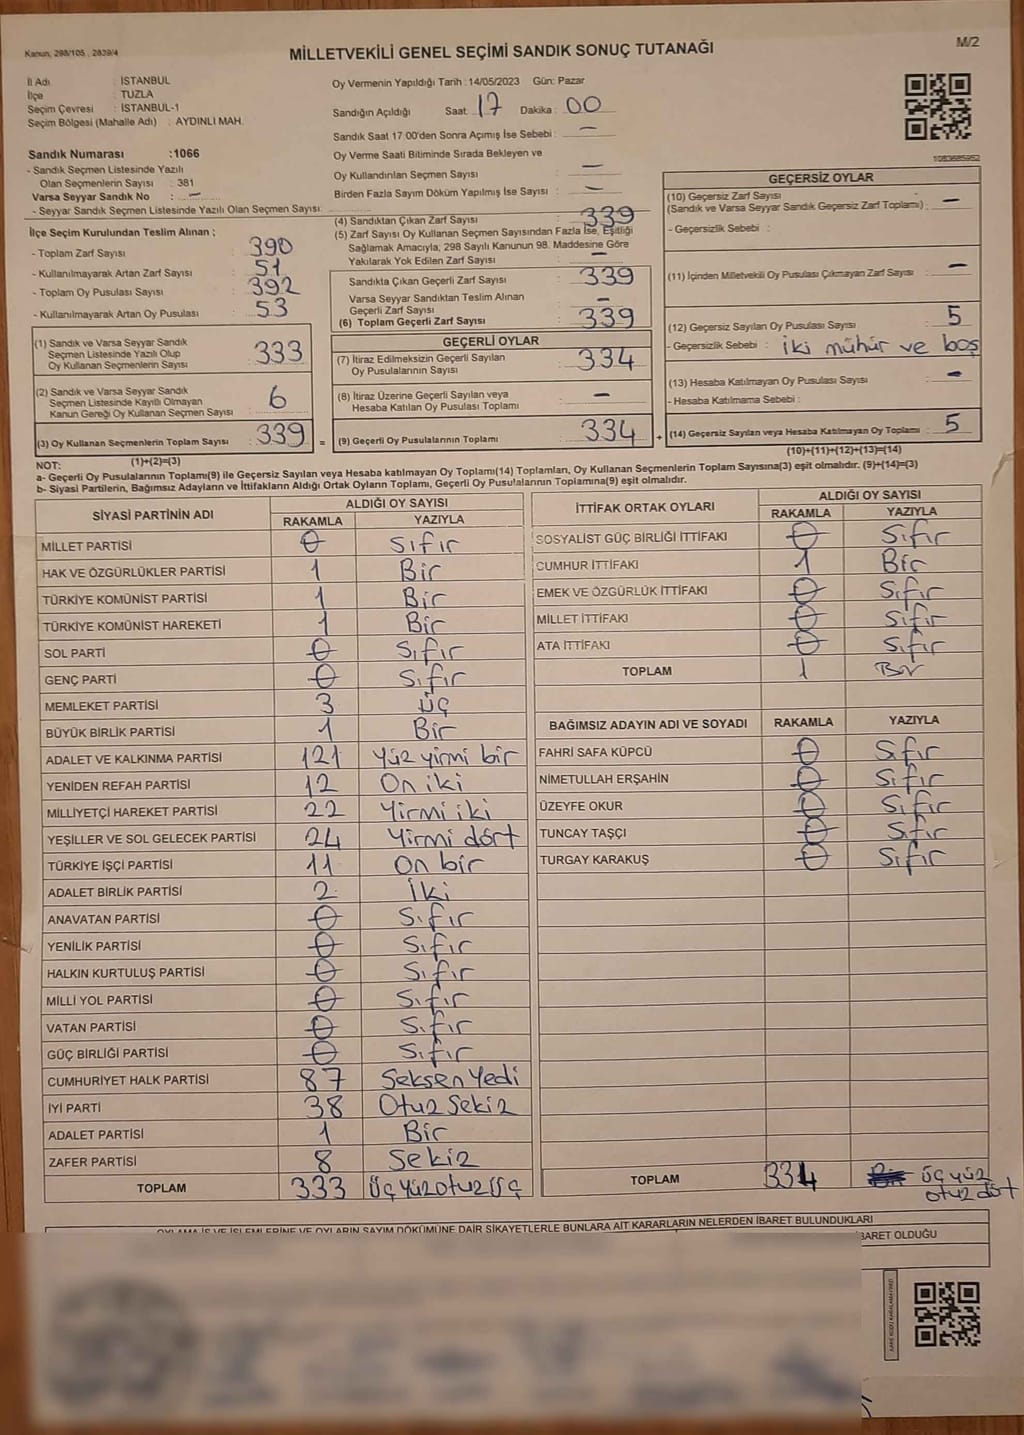 Kanun, 298/105 , 2839/4
MİLLETVEKİLİ GENEL SEÇİMİ SANDIK SONUÇ TUTANAĞI
M/2
İl Adı : İSTANBUL
İlçe : TUZLA
Seçim Çevresi : İSTANBUL-1
Seçim Bölgesi (Mahalle Adı) : AYDINLI MAH.
Sandık Numarası :1066
- Sandık Seçmen Listesinde Yazılı
Olan Seçmenlerin Sayısı : 381
Varsa Seyyar Sandık No : —
- Seyyar Sandık Seçmen Listesinde Yazılı Olan Seçmen Sayısı:
İlçe Seçim Kurulundan Teslim Alınan ;
- Toplam Zarf Sayısı : 390
- Kullanılmayarak Artan Zarf Sayısı : 51
- Toplam Oy Pusulası Sayısı : 392
- Kullanılmayarak Artan Oy Pusulası : 53
(1) Sandık ve Varsa Seyyar Sandık
Seçmen Listesinde Yazılı Olup
Oy Kullanan Seçmenlerin Sayısı : 333
(2) Sandık ve Varsa Seyyar Sandık
Seçmen Listesinde Kayıtlı Olmayan
Kanun Gereği Oy Kullanan Seçmen Sayısı : 6
(3) Oy Kullanan Seçmenlerin Toplam Sayısı : 339
(1)+(2)=(3)
Oy Vermenin Yapıldığı Tarih : 14/05/2023 Gün: Pazar
Sandığın Açıldığı Saat: 17 Dakika : 00
Sandık Saat 17:00'den Sonra Açımış İse Sebebi : —
Oy Verme Saati Bitiminde Sırada Bekleyen ve
Oy Kullandırılan Seçmen Sayısı : —
Birden Fazla Sayım Döküm Yapılmış İse Sayısı : —
(4) Sandıktan Çıkan Zarf Sayısı : 339
(5) Zarf Sayısı Oy Kullanan Seçmen Sayısından Fazla İse, Eşitliği
Sağlamak Amacıyla, 298 Sayılı Kanunun 98. Maddesine Göre
Yakılarak Yok Edilen Zarf Sayısı : —
Sandıkta Çıkan Geçerli Zarf Sayısı : 339
Varsa Seyyar Sandıktan Teslim Alınan
Geçerli Zarf Sayısı : —
(6) Toplam Geçerli Zarf Sayısı : 339
GEÇERLİ OYLAR
(7) İtiraz Edilmeksizin Geçerli Sayılan
Oy Pusulalarının Sayısı : 334
(8) İtiraz Üzerine Geçerli Sayılan veya
Hesaba Katılan Oy Pusulası Toplamı : —
= (9) Geçerli Oy Pusulalarının Toplamı : 334
1083685952
GEÇERSİZ OYLAR
(10) Geçersiz Zarf Sayısı
(Sandık ve Varsa Seyyar Sandık Geçersiz Zarf Toplamı) : —
- Geçersizlik Sebebi :
(11) İçinden Milletvekili Oy Pusulası Çıkmayan Zarf Sayısı : —
(12) Geçersiz Sayılan Oy Pusulası Sayısı : 5
- Geçersizlik Sebebi : iki mühür ve boş
(13) Hesaba Katılmayan Oy Pusulası Sayısı : —
- Hesaba Katılmama Sebebi :
+ (14) Geçersiz Sayılan veya Hesaba Katılmayan Oy Toplamı : 5
(10)+(11)+(12)+(13)=(14)
NOT:
a- Geçerli Oy Pusulalarının Toplamı(9) ile Geçersiz Sayılan veya Hesaba katılmayan Oy Toplamı(14) Toplamları, Oy Kullanan Seçmenlerin Toplam Sayısına(3) eşit olmalıdır. (9)+(14)=(3)
b- Siyasi Partilerin, Bağımsız Adayların ve İttifakların Aldığı Ortak Oyların Toplamı, Geçerli Oy Pusulalarının Toplamına(9) eşit olmalıdır.
SİYASİ PARTİNİN ADI ALDIĞI OY SAYISI
RAKAMLA YAZIYLA
MİLLET PARTİSİ 0 Sıfır
HAK VE ÖZGÜRLÜKLER PARTİSİ 1 Bir
TÜRKİYE KOMÜNİST PARTİSİ 1 Bir
TÜRKİYE KOMÜNİST HAREKETİ 1 Bir
SOL PARTİ 0 Sıfır
GENÇ PARTİ 0 Sıfır
MEMLEKET PARTİSİ 3 üç
BÜYÜK BİRLİK PARTİSİ 1 Bir
ADALET VE KALKINMA PARTİSİ 121 Yüz yirmi bir
YENİDEN REFAH PARTİSİ 12 On iki
MİLLİYETÇİ HAREKET PARTİSİ 22 Yirmi iki
YEŞİLLER VE SOL GELECEK PARTİSİ 24 Yirmi dört
TÜRKİYE İŞÇİ PARTİSİ 11 On bir
ADALET BİRLİK PARTİSİ 2 iki
ANAVATAN PARTİSİ 0 Sıfır
YENİLİK PARTİSİ 0 Sıfır
HALKIN KURTULUŞ PARTİSİ 0 Sıfır
MİLLİ YOL PARTİSİ 0 Sıfır
VATAN PARTİSİ 0 Sıfır
GÜÇ BİRLİĞİ PARTİSİ 0 Sıfır
CUMHURİYET HALK PARTİSİ 87 Seksen Yedi
İYİ PARTİ 38 Otuz Sekiz
ADALET PARTİSİ 1 Bir
ZAFER PARTİSİ 8 Sekiz
TOPLAM 333 üç yüz otuz üç
İTTİFAK ORTAK OYLARI ALDIĞI OY SAYISI
RAKAMLA YAZIYLA
SOSYALİST GÜÇ BİRLİĞİ İTTİFAKI 0 Sıfır
CUMHUR İTTİFAKI 1 Bir
EMEK VE ÖZGÜRLÜK İTTİFAKI 0 Sıfır
MİLLET İTTİFAKI 0 Sıfır
ATA İTTİFAKI 0 Sıfır
TOPLAM 1 Bir
BAĞIMSIZ ADAYIN ADI VE SOYADI RAKAMLA YAZIYLA
FAHRİ SAFA KÜPCÜ 0 Sıfır
NİMETULLAH ERŞAHİN 0 Sıfır
ÜZEYFE OKUR 0 Sıfır
TUNCAY TAŞÇI 0 Sıfır
TURGAY KARAKUŞ 0 Sıfır
TOPLAM 334 üç yüz
otuz dört
OYLAMA İŞ VE İŞLEMLERİNE VE OYLARIN SAYIM DÖKÜMÜNE DAİR ŞİKAYETLERLE BUNLARA AİT KARARLARIN NELERDEN İBARET BULUNDUKLARI
BARET OLDUĞU